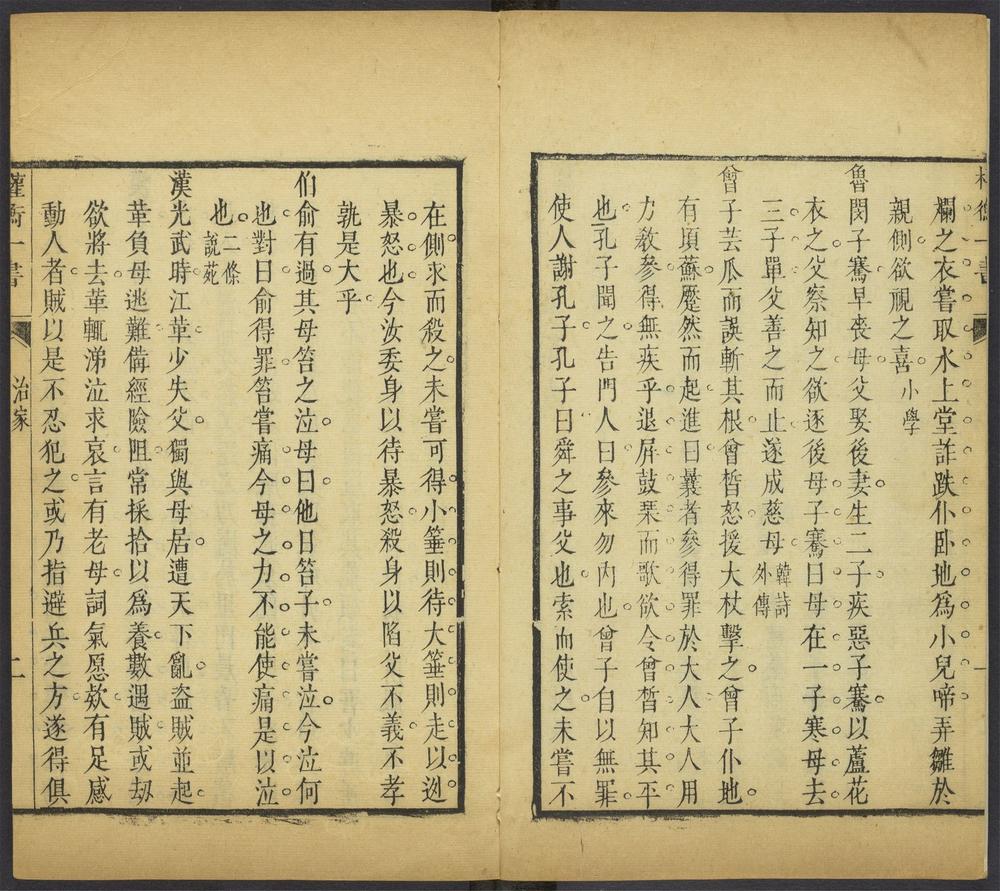 斕之衣嘗取水上堂詐跌仆卧地爲小兒啼弄雛於
親側欲視之喜小學
魯閔子騫早喪母父娶後妻生二子疾惡子騫以蘆花
衣之父察知之欲逐後母子騫曰母在一子寒母去
三子單父善之而止遂成慈母韓詩外傳
曾子芸瓜而誤斬其根曾晳怒援大杖擊之曾子仆地
有頃蘇蹷然而起進曰曩者參得罪於大人大人用
力敎參得無疾乎退屏鼓琹而歌欲令曾晳知其平
也孔子聞之告門人曰參來勿內也曾子自以無罪
使人謝孔子孔子曰舜之事父也索而使之未嘗不
在側求而殺之未嘗可得小箠則待大箠則走以逃
暴怒也今汝委身以待暴怒殺身以陷父不義不孝
孰是大乎
伯俞有過其母笞之泣母曰他日笞子未嘗泣今泣何
也對曰俞得罪笞嘗痛今母之力不能使痛是以泣
也二條說苑
漢光武時江革少失父獨與母居遭天下亂盜賊並起
革負母逃難備經險阻常採拾以爲養數遇賊或劫
欲將去革輒涕泣求哀言有老母詞氣愿欵有足感
動人者賊以是不忍犯之或乃指避兵之方遂得俱
權衡一書 治家 二